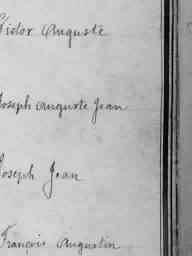 Victor Auguste
Joseph Auguste Jean
Joseph Jean
Francois Augustin